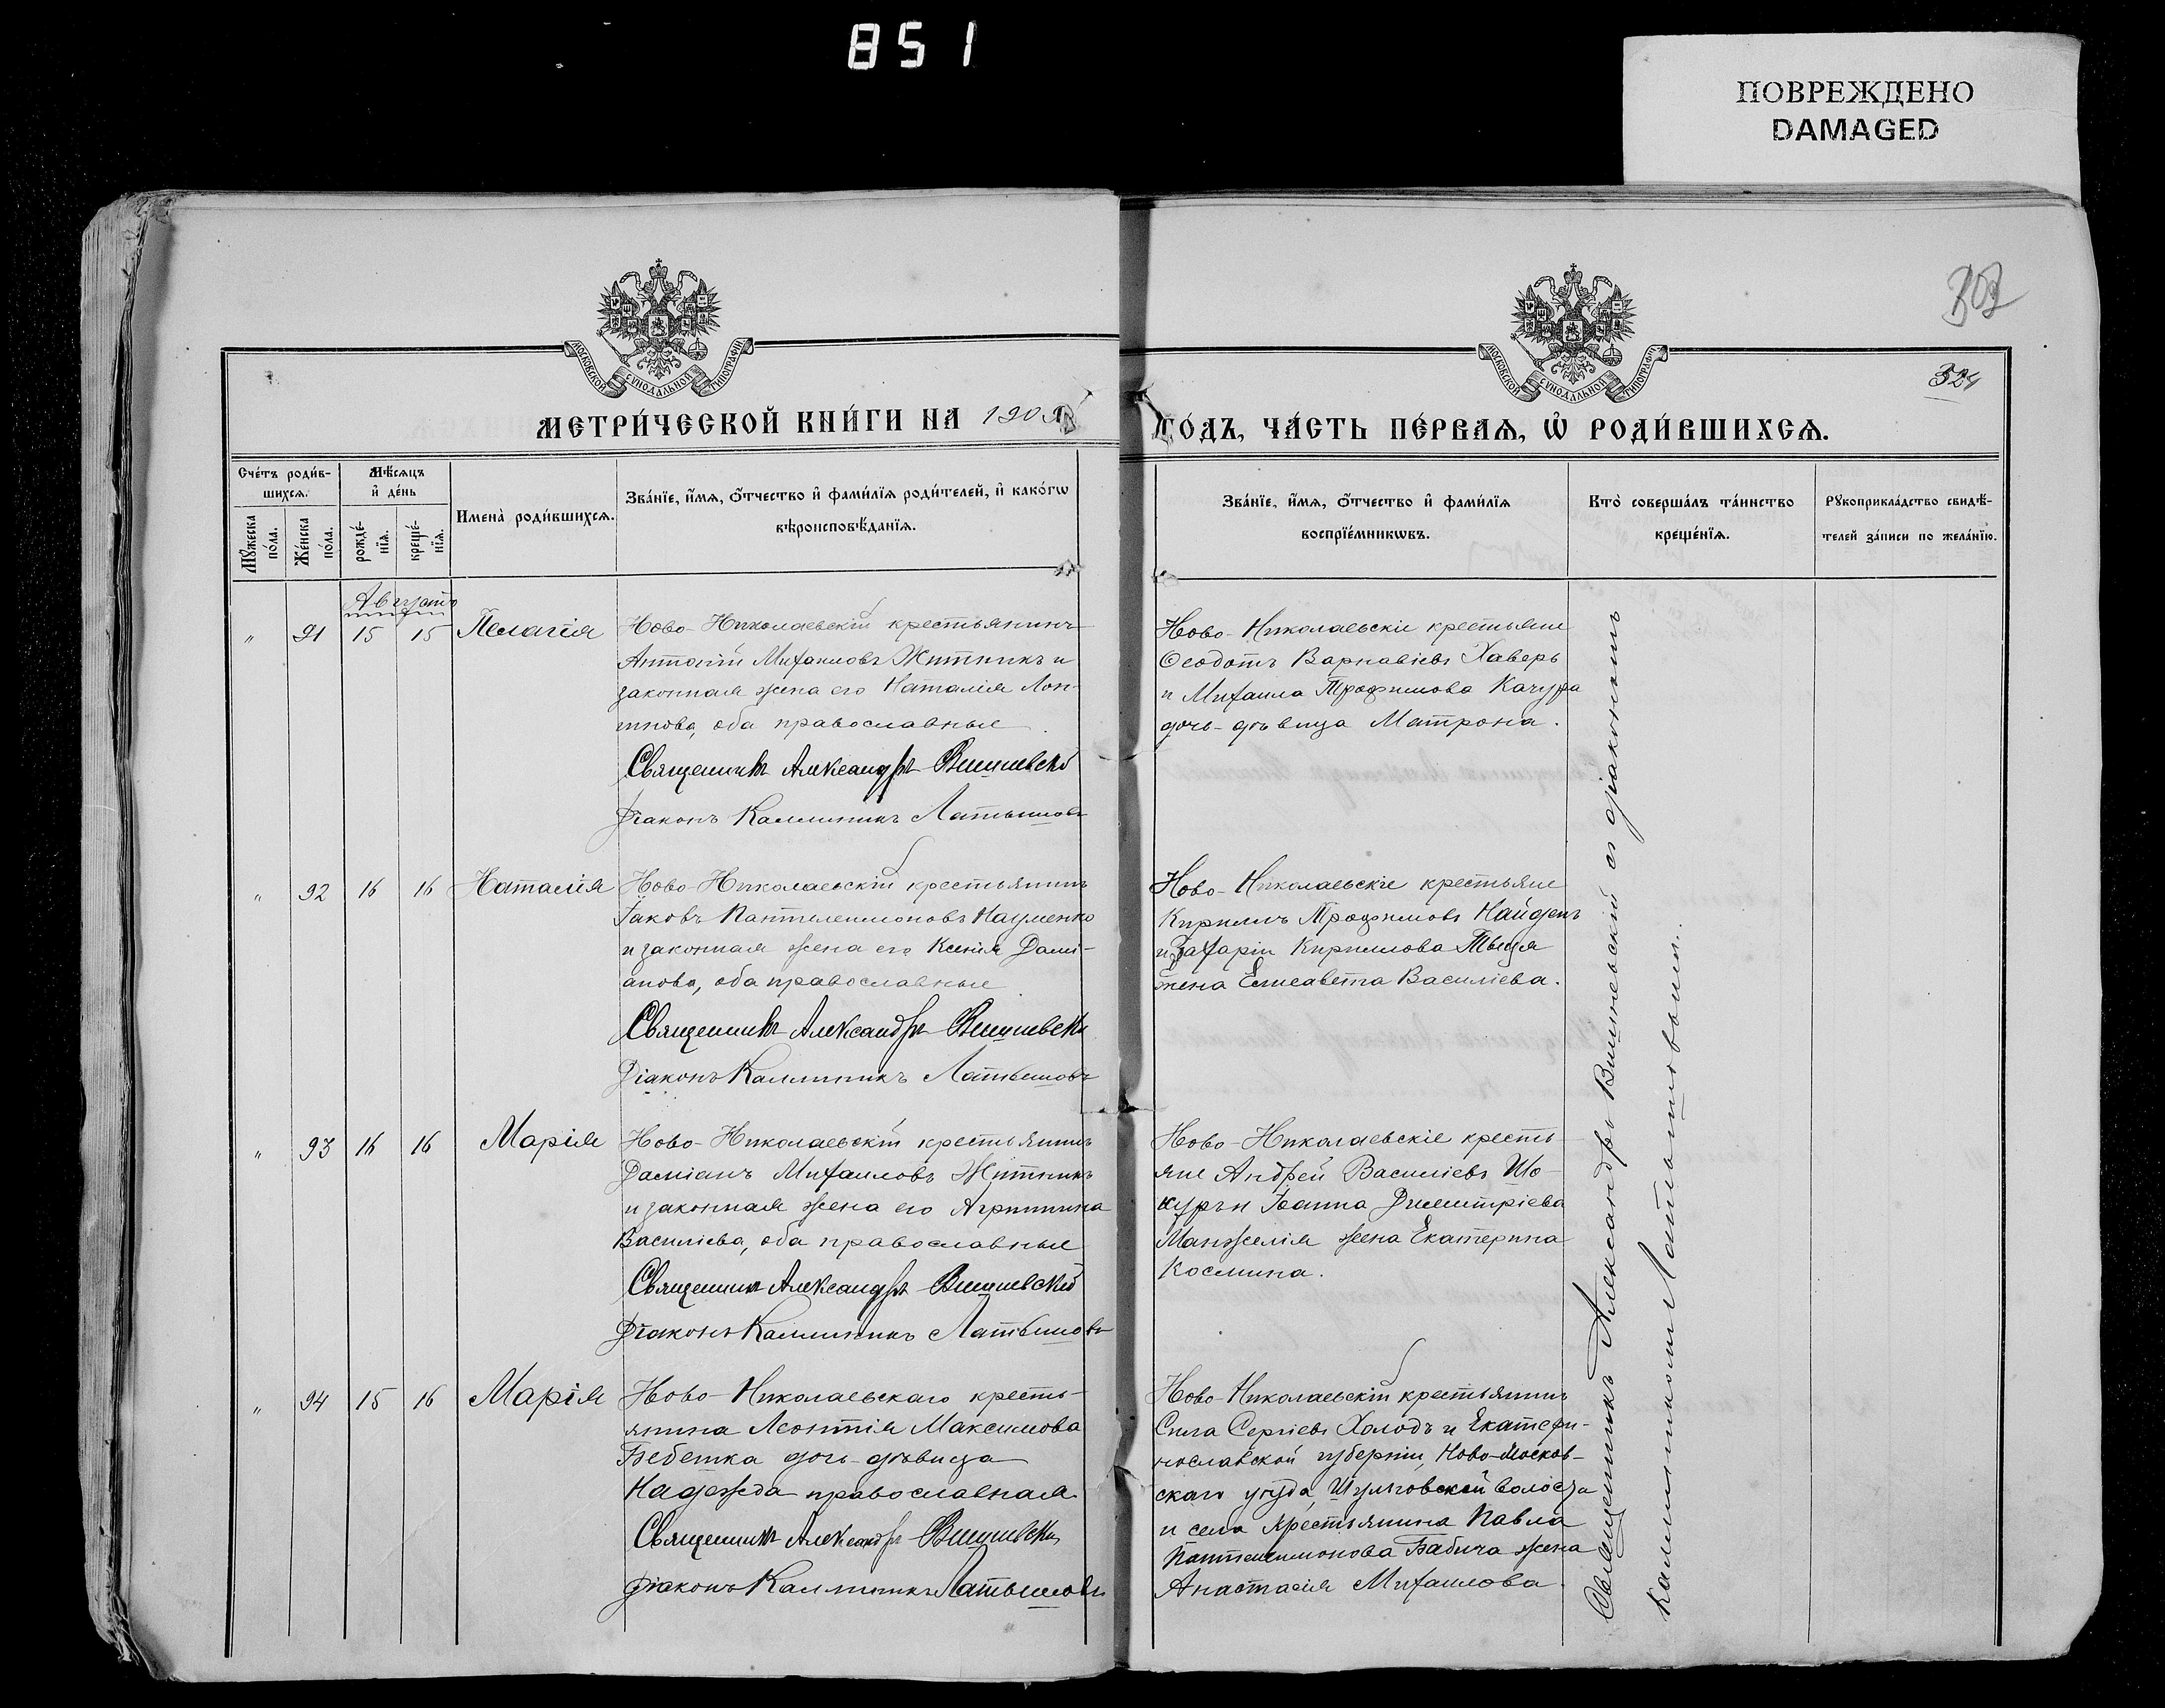 851
ПОВРЕЖДЕНО
DAMAGED
324
МОСКОВСКОЙ СѴНОДАЛЬНОЙ ТИПОГРАФІИ
МОСКОВСКОЙ СѴНОДАЛЬНОЙ ТИПОГРАФІИ
МЕТРИ́ЧЕСКОЙ КНИ́ГИ НА 190
ГО́ДЪ, ЧА́СТЬ ПЕ́РВАѦ, Ѡ҆ РОДИ́ВШИХСѦ.
Сче́тъ роди́в-
шихсѧ.
Мѣ́сѧцъ
и҆ де́нь
Мꙋ́жеска по́ла.
Же́нска по́ла.
рожде́-
нїѧ.
креще́-
нїѧ.
Имена̀ роди́вшихсѧ.
Зва́нїе, и҆́мѧ, ѻ҆́тчество и҆ фами́лїѧ роди́телей, и҆ како́гѡ
вѣроисповѣ́данїѧ.
Зва́нїе, и҆́мѧ, ѻ҆́тчество и҆ фами́лїѧ
воспрїе́мникѡвъ.
Кто̀ соверша́лъ та́инство
креще́нїѧ.
Рꙋкоприкла́дство свидѣ́-
телей за́писи по жела́нїю.
Августъ
" 91 15 15 Пелагія
Ново-Николаевскій крестьянинъ
Антоній Михаиловъ Житникъ и
законная жена его Наталія Лон-
гинова, оба православные
Священникъ Александръ Вишневскій
Діаконъ Каллиникъ Латышовъ
Ново-Николаевскіе крестьяне
Ѳеодотъ Варнавіевъ Хаверь
и Михаила Трофимова Качура
дочь-дѣвица Матрона.
" 92 16 16 Наталія
Ново-Николаевскій крестьянинъ
Іаковъ Пантелеимоновъ Науменко
и законная жена его Ксенія Дамі-
анова, оба православные
Священникъ Александръ Вишневскій
Діаконъ Каллиникъ Латышовъ
Ново-Николаевскіе крестьяне
Кириллъ Трофимовъ Найденъ
и Захаріи Кириллова Тыця
жена Елисавета Василіева.
" 93 16 16 Марія
Ново-Николаевскій крестьянинъ
Даміанъ Михаиловъ Житникъ
и законная жена его Агриппина
Василіева, оба православные
Священникъ Александръ Вишневскій
Діаконъ Каллиникъ Латышовъ
Ново-Николаевскіе кресть-
яне Андрей Василіевъ Шо-
куръ и Іоанна Димитріева
Манжелія жена Екатерина
Космина.
" 94 15 16 Марія
Ново-Николаевскаго кресть-
янина Леонтія Максимова
Бебетка дочь-дѣвица
Надежда православная
Священникъ Александръ Вишневскій
Діаконъ Каллиникъ Латышовъ
Ново-Николаевскій крестьянинъ
Сила Сергіевъ Холодъ и Екатери-
нославской губерніи, Ново-Москов-
скаго уѣзда, Шульговской волости
и села крестьянина Павла
Пантелеимонова Бабича жена
Анастасія Михаилова.
Священникъ Александръ Вишневскій съ діакономъ
Каллиникомъ Латышовымъ.